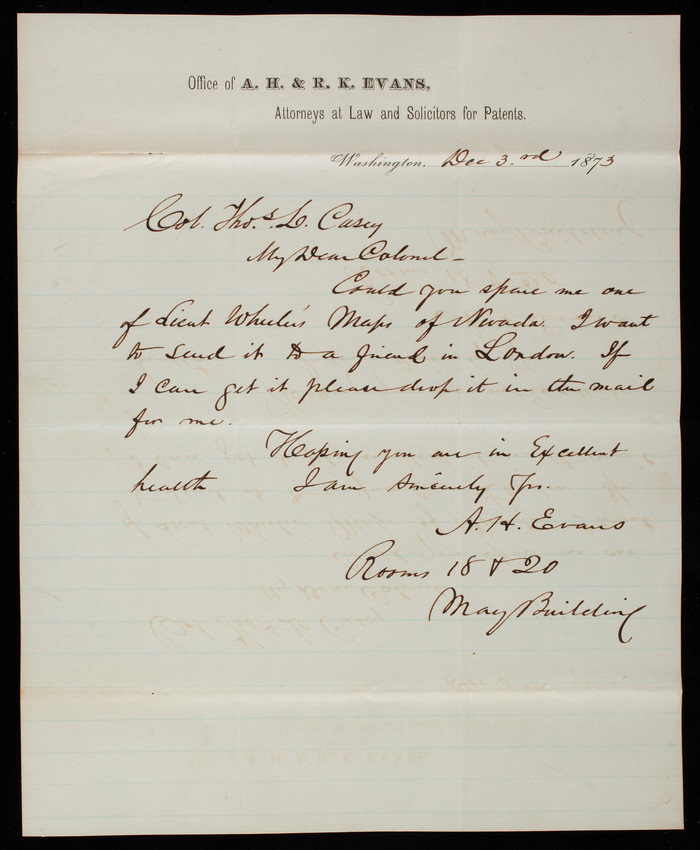 Office of A. H. & R. K. EVANS,
Attorneys at Law and Solicitors for Patents.
Washington, Dec 3.rd 1873
Col. Thos. L. Casey
My Dear Colonel –
Could you spare me one
of Lieut Wheeler's Maps of Nevada. I want
to send it to a friend in London. If
I can get it please drop it in the mail
for me.
Hoping you are in Excellent
health I am Sincerely Yrs.
A. H. Evans
Rooms 18 & 20
May Building